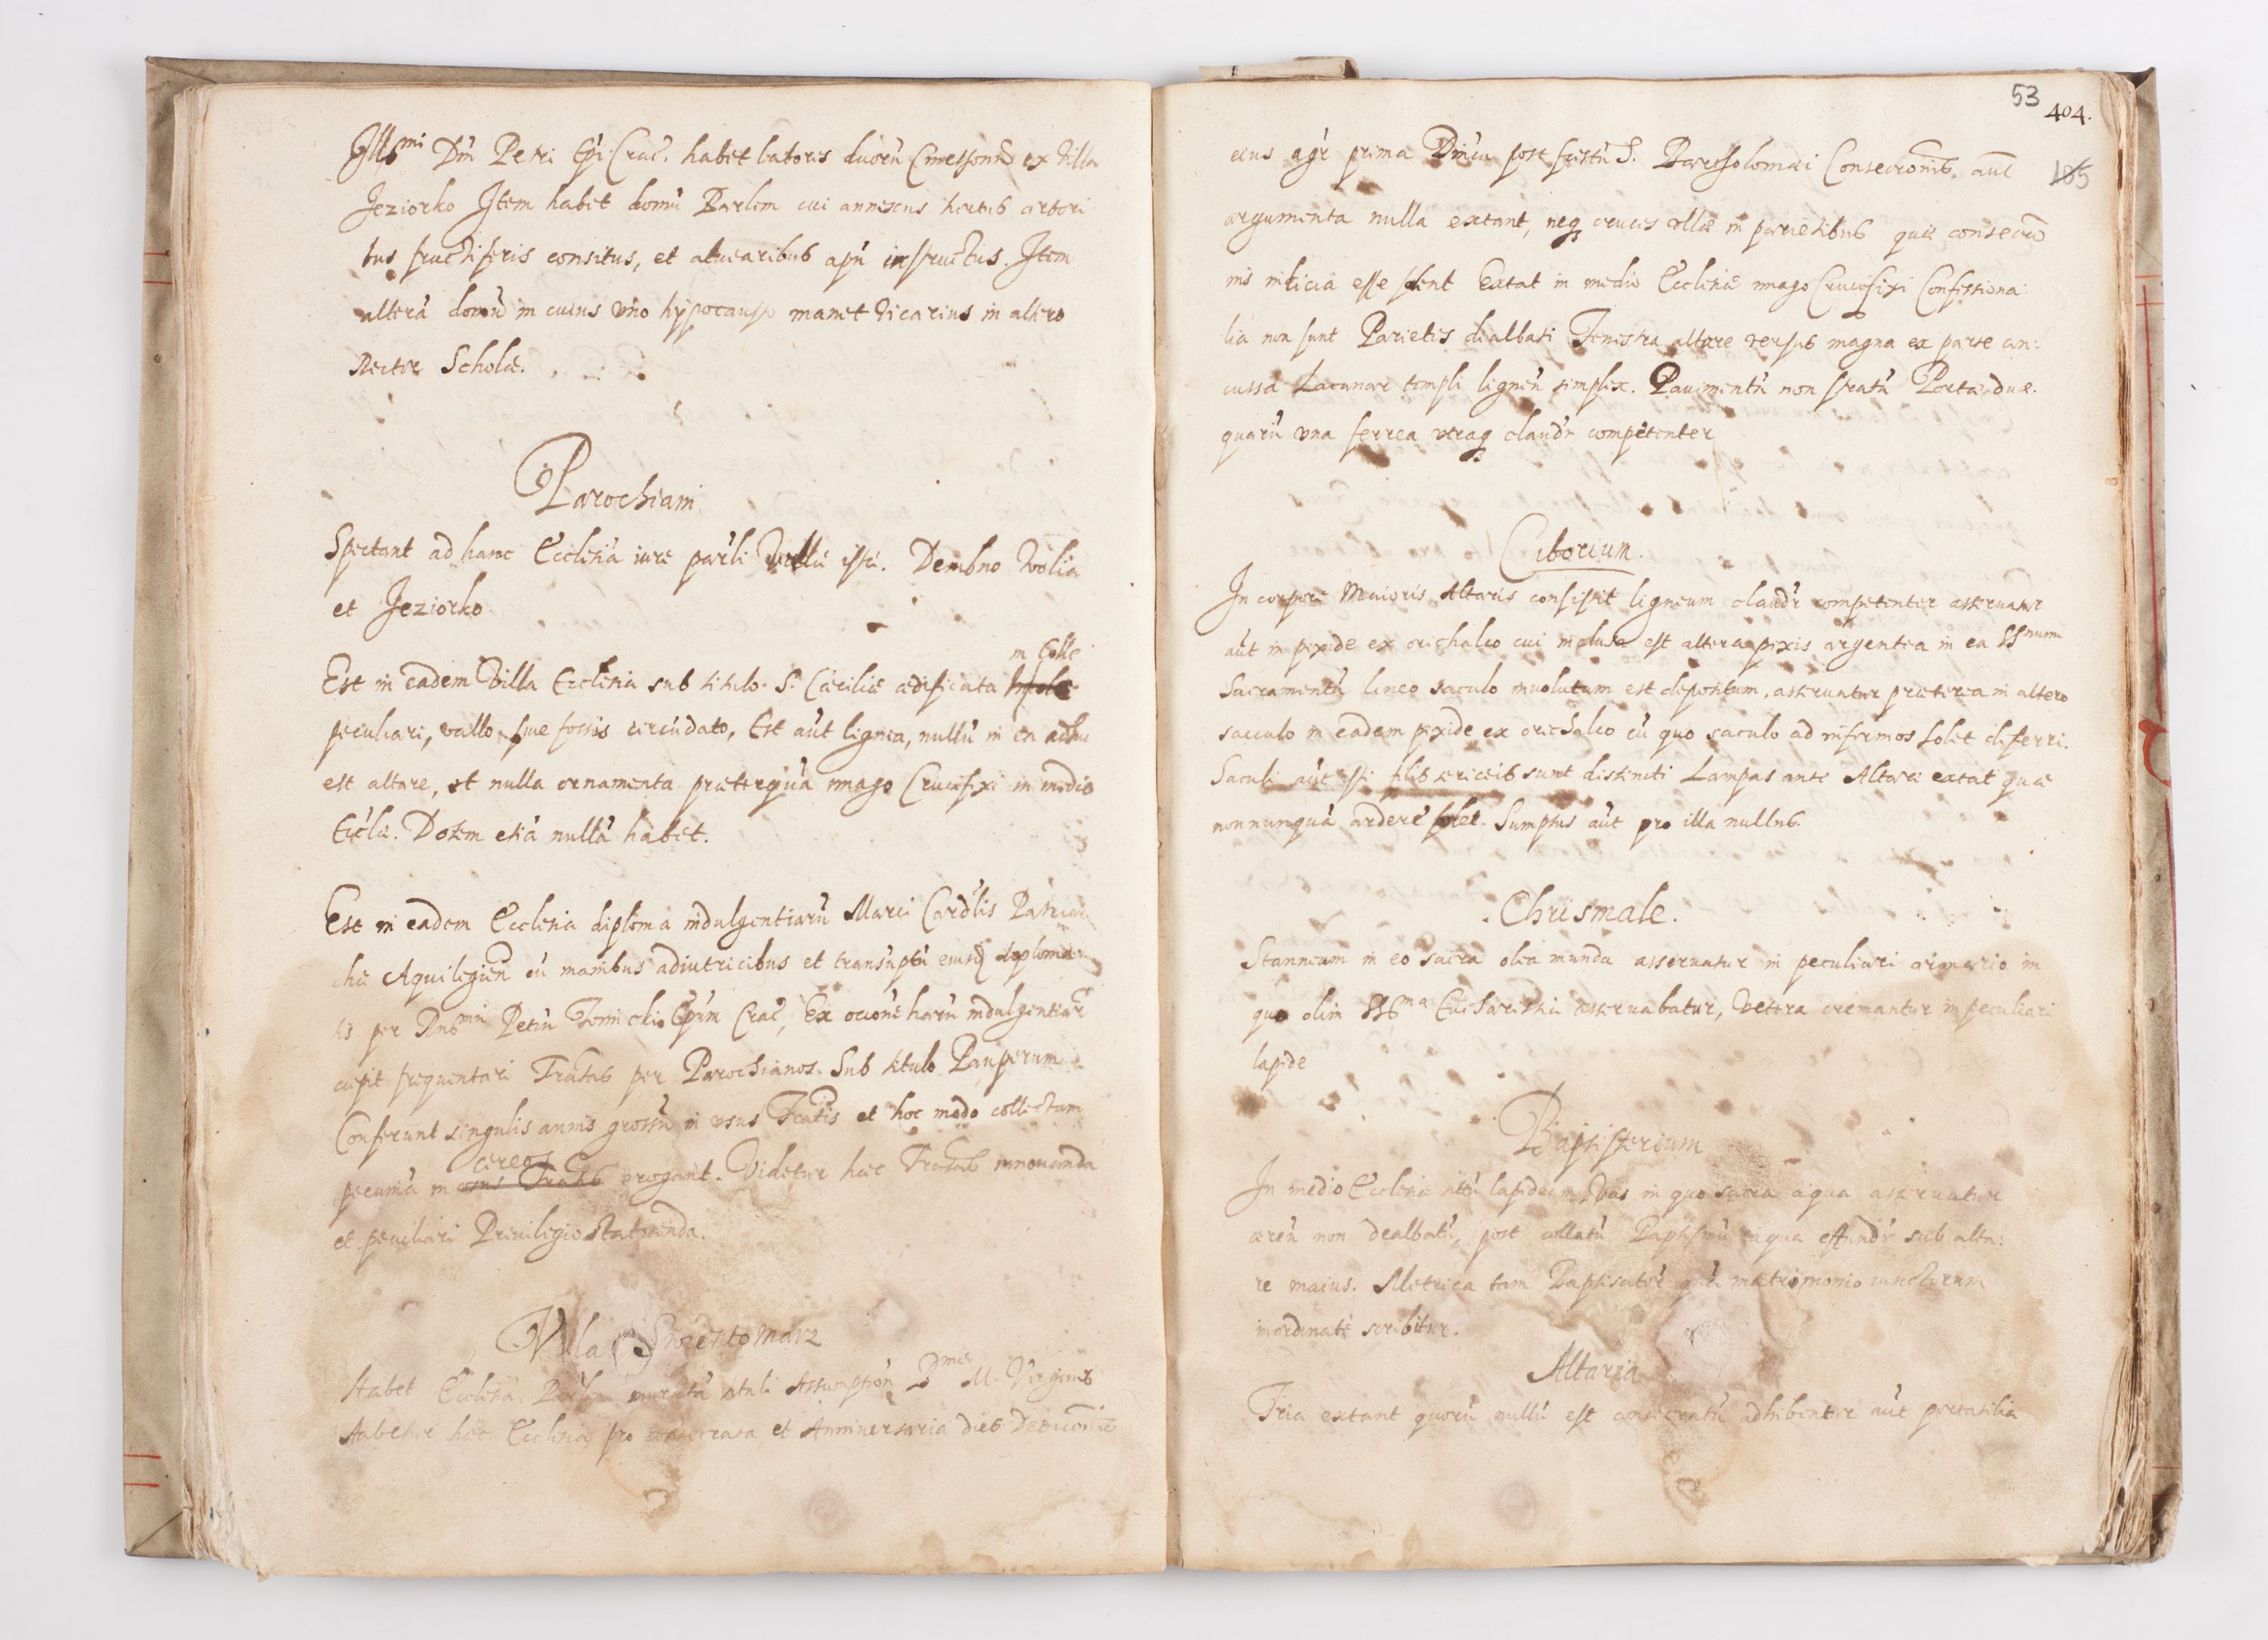 Illsmi Dni Petri Epi Crac. habet labores duorũ Cmethonũ ex Villa
Jeziorko Item habet domũ Parlem cui annexus hortus arbori
bus fructiferis consitus, et aluearibus apũ instructus. Item
alterã domũ in cuius vno hypocausto manet Vicarius in altero
Rector Scholæ.
Parochiani
Spectant ad hanc Ecclesiã iure parli Villæ istæ. Dembno Wolia
et Jeziorko
in Colle
Est in eadem Villa Ecclesia sub titulo S. Cæciliæ ædificata
peculiari, vallo siue fossis circũdato, Est aũt lignea, nullũ in ea adhuc
est altare, et nulla ornamenta præterquã imago Crucifixi in medio
Eccłæ. Dotem etiã nullã habet.
Est in eadem Ecclesia diploma indulgentiarũ Marci Cardlis Patriar
chæ Aquilegień cũ manibus adiutricibus et transũptũ eiusdẽ diploma
tis per Petrũ Tomickiũ Epũm Crac, Ex occone harũ indulgentiarũ
cæpit frequentari Fratntas per Parochianos. Sub titulo Pauperum
Conferunt singulis annis grossũ in vsus Fratntis et hoc modo collectam
cereos
pecuniã in vsus Fratntis erogant. Videtur hæc Fratntas innouanda
et peculiari Priuilegio statuenda.
Villa Swientomarz
Habet Ecclesiã Parlem muratã tituli Assumption Bmæ M. Virginis
Habetur hæc Ecclesia pro consecrata et Anniuersaria dies Dediconis
53
404.
185
eius agr prima Dnica post festũ S. Bartholomæi Consecronis aũt
argumenta nulla extant, neq cruces vllæ in parietibus quæ consecro
nis indicia esse solent Extat in medio Ecclesiæ imago Crucifixi Confessiona:
lia non sunt Parietes dealbati Fenestra altare versus magna ex parte ex:
cussa Lacunar templi ligneũ simplex. Pauimentũ non stratũ Portæ duæ.
quarũ vna ferrea vtraq claudr competenter
Ciborium.
In corpore Maioris Altaris consistit ligneum claudr competenter asseruatur
aũt in pixide ex orichalco cui inclusa est altera pixis argentea in ea SSmum
Sacramentũ lineo saculo inuolutum est depositum, asseruatur præterea in altero
sacculo in eadem pixide ex orichalco cũ quo saculo ad infirmos solet deferri.
Saculi aũt isti filis sericeis sunt distincti Lampas ante Altare extat quæ
nonnunquã ardere solet. Sumptus aũt pro illa nullus.
Chrismale.
Stanneum in eo sacra olea munda asseruatur in peculiari armario in
quo olim SSma Eucharistia asseruabatur, Vetera cremantur in peculiari
lapide
Baptisterium
In medio Ecclesiæ sitũ lapideum, Vas in quo sacra aqua asseruatur
æreũ non dealbatũ, post collatũ Baptismũ aqua effundr sub alta:
re maius. Metrica tam Baptisatorũ quã matrimonio iunctorum
inordinate scribitur.
Altaria
Tria extant quorũ nullũ est consecratũ adhibentur aũt portatilia